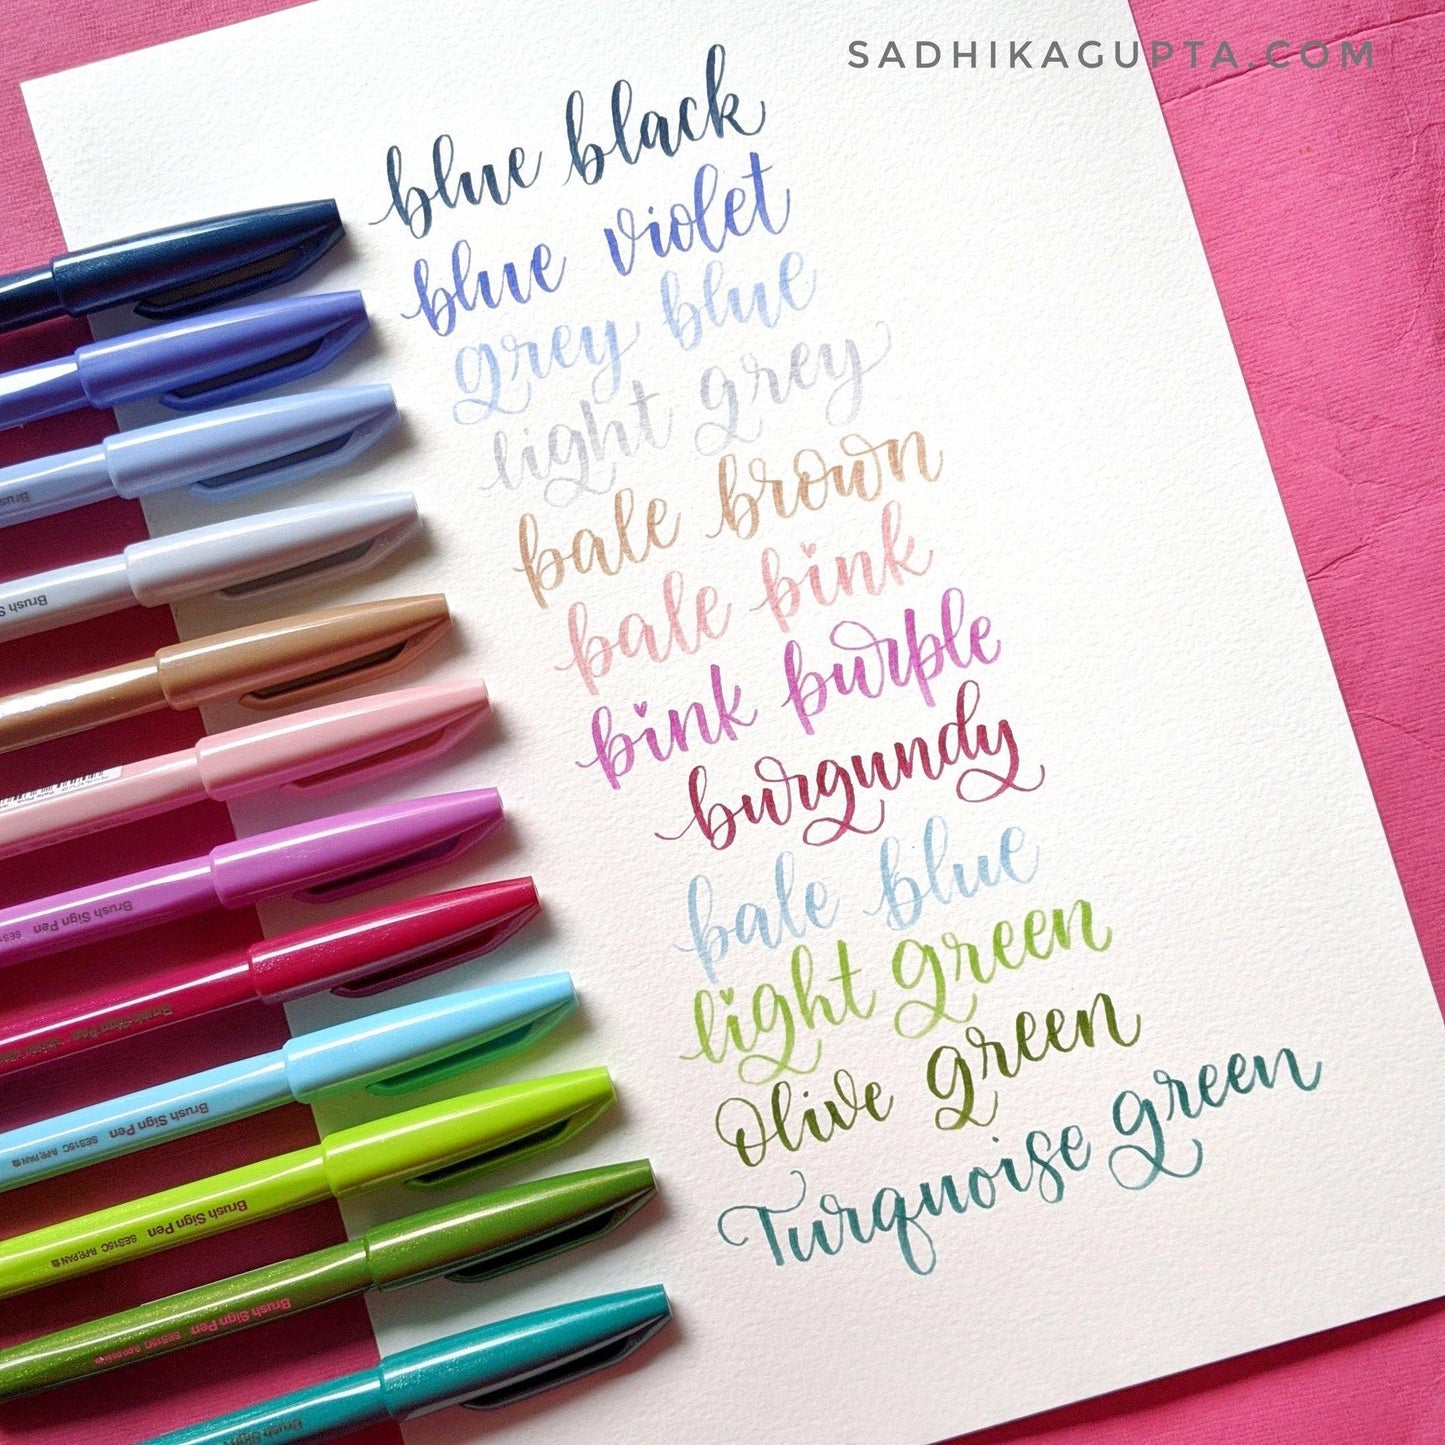 SADHIKAGUPTA.COM
blue black
blue violet
grey blue
light grey
pale brown
pale pink
pink purple
burgundy
pale blue
light green
Olive green
Turquoise green
Brush
Brush S
Brush Sign Pen SES15
Brush Sign Pen
Brush Sign Pen SES15C JAPAN
Brush Sign Pen SES15C JAPAN
Brush Sign Pen SES15C JAPAN
Brush Sign